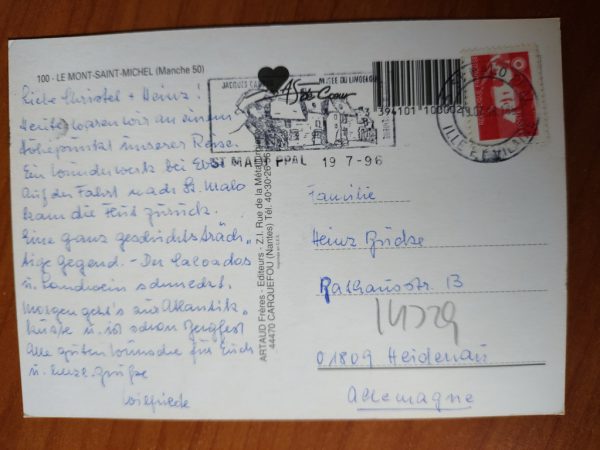 100 - LE MONT-SAINT-MICHEL (Manche 50)
Liebe Christel + Heinz!
Heute waren wir an einem
Höhepunkt unserer Reise.
Ein Wunderwerk bei Ebbe
Auf der Fahrt nach St. Malo
kam die Flut zurück.
Eine ganz geschichtsträch„
tige Gegend. - Der Calvados
u. Landwein schmeckt.
Morgen geht's zur Atlantik„
küste u. ist schon Bergfest
Alle guten Wünsche für Euch
u. Grüße
Wilfriede
ARTAUD Frères - Editeurs - Z.I. Rue de la Métairie
44470 CARQUEFOU (Nantes) Tél. 40-30-26
JACQUES CA
MUSEE DU LIMOELOU
Cœur
3 394101 100002
ST MALO PPAL 19 7-96
ILLE ET VILAINE
Familie
Heinz
Rathausstr. 13
01809 Heidenau
Allemagne